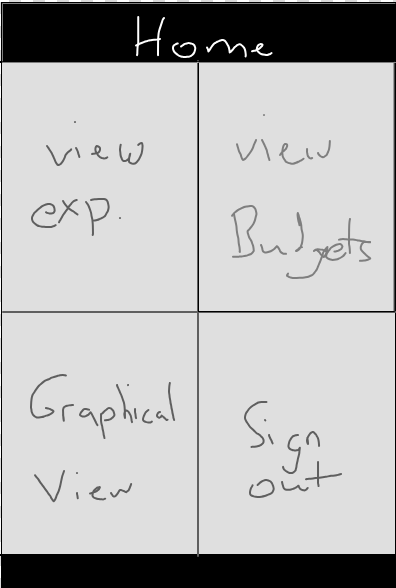 Home
view
exp.
view
Budgets
Graphical
View
Sign
out